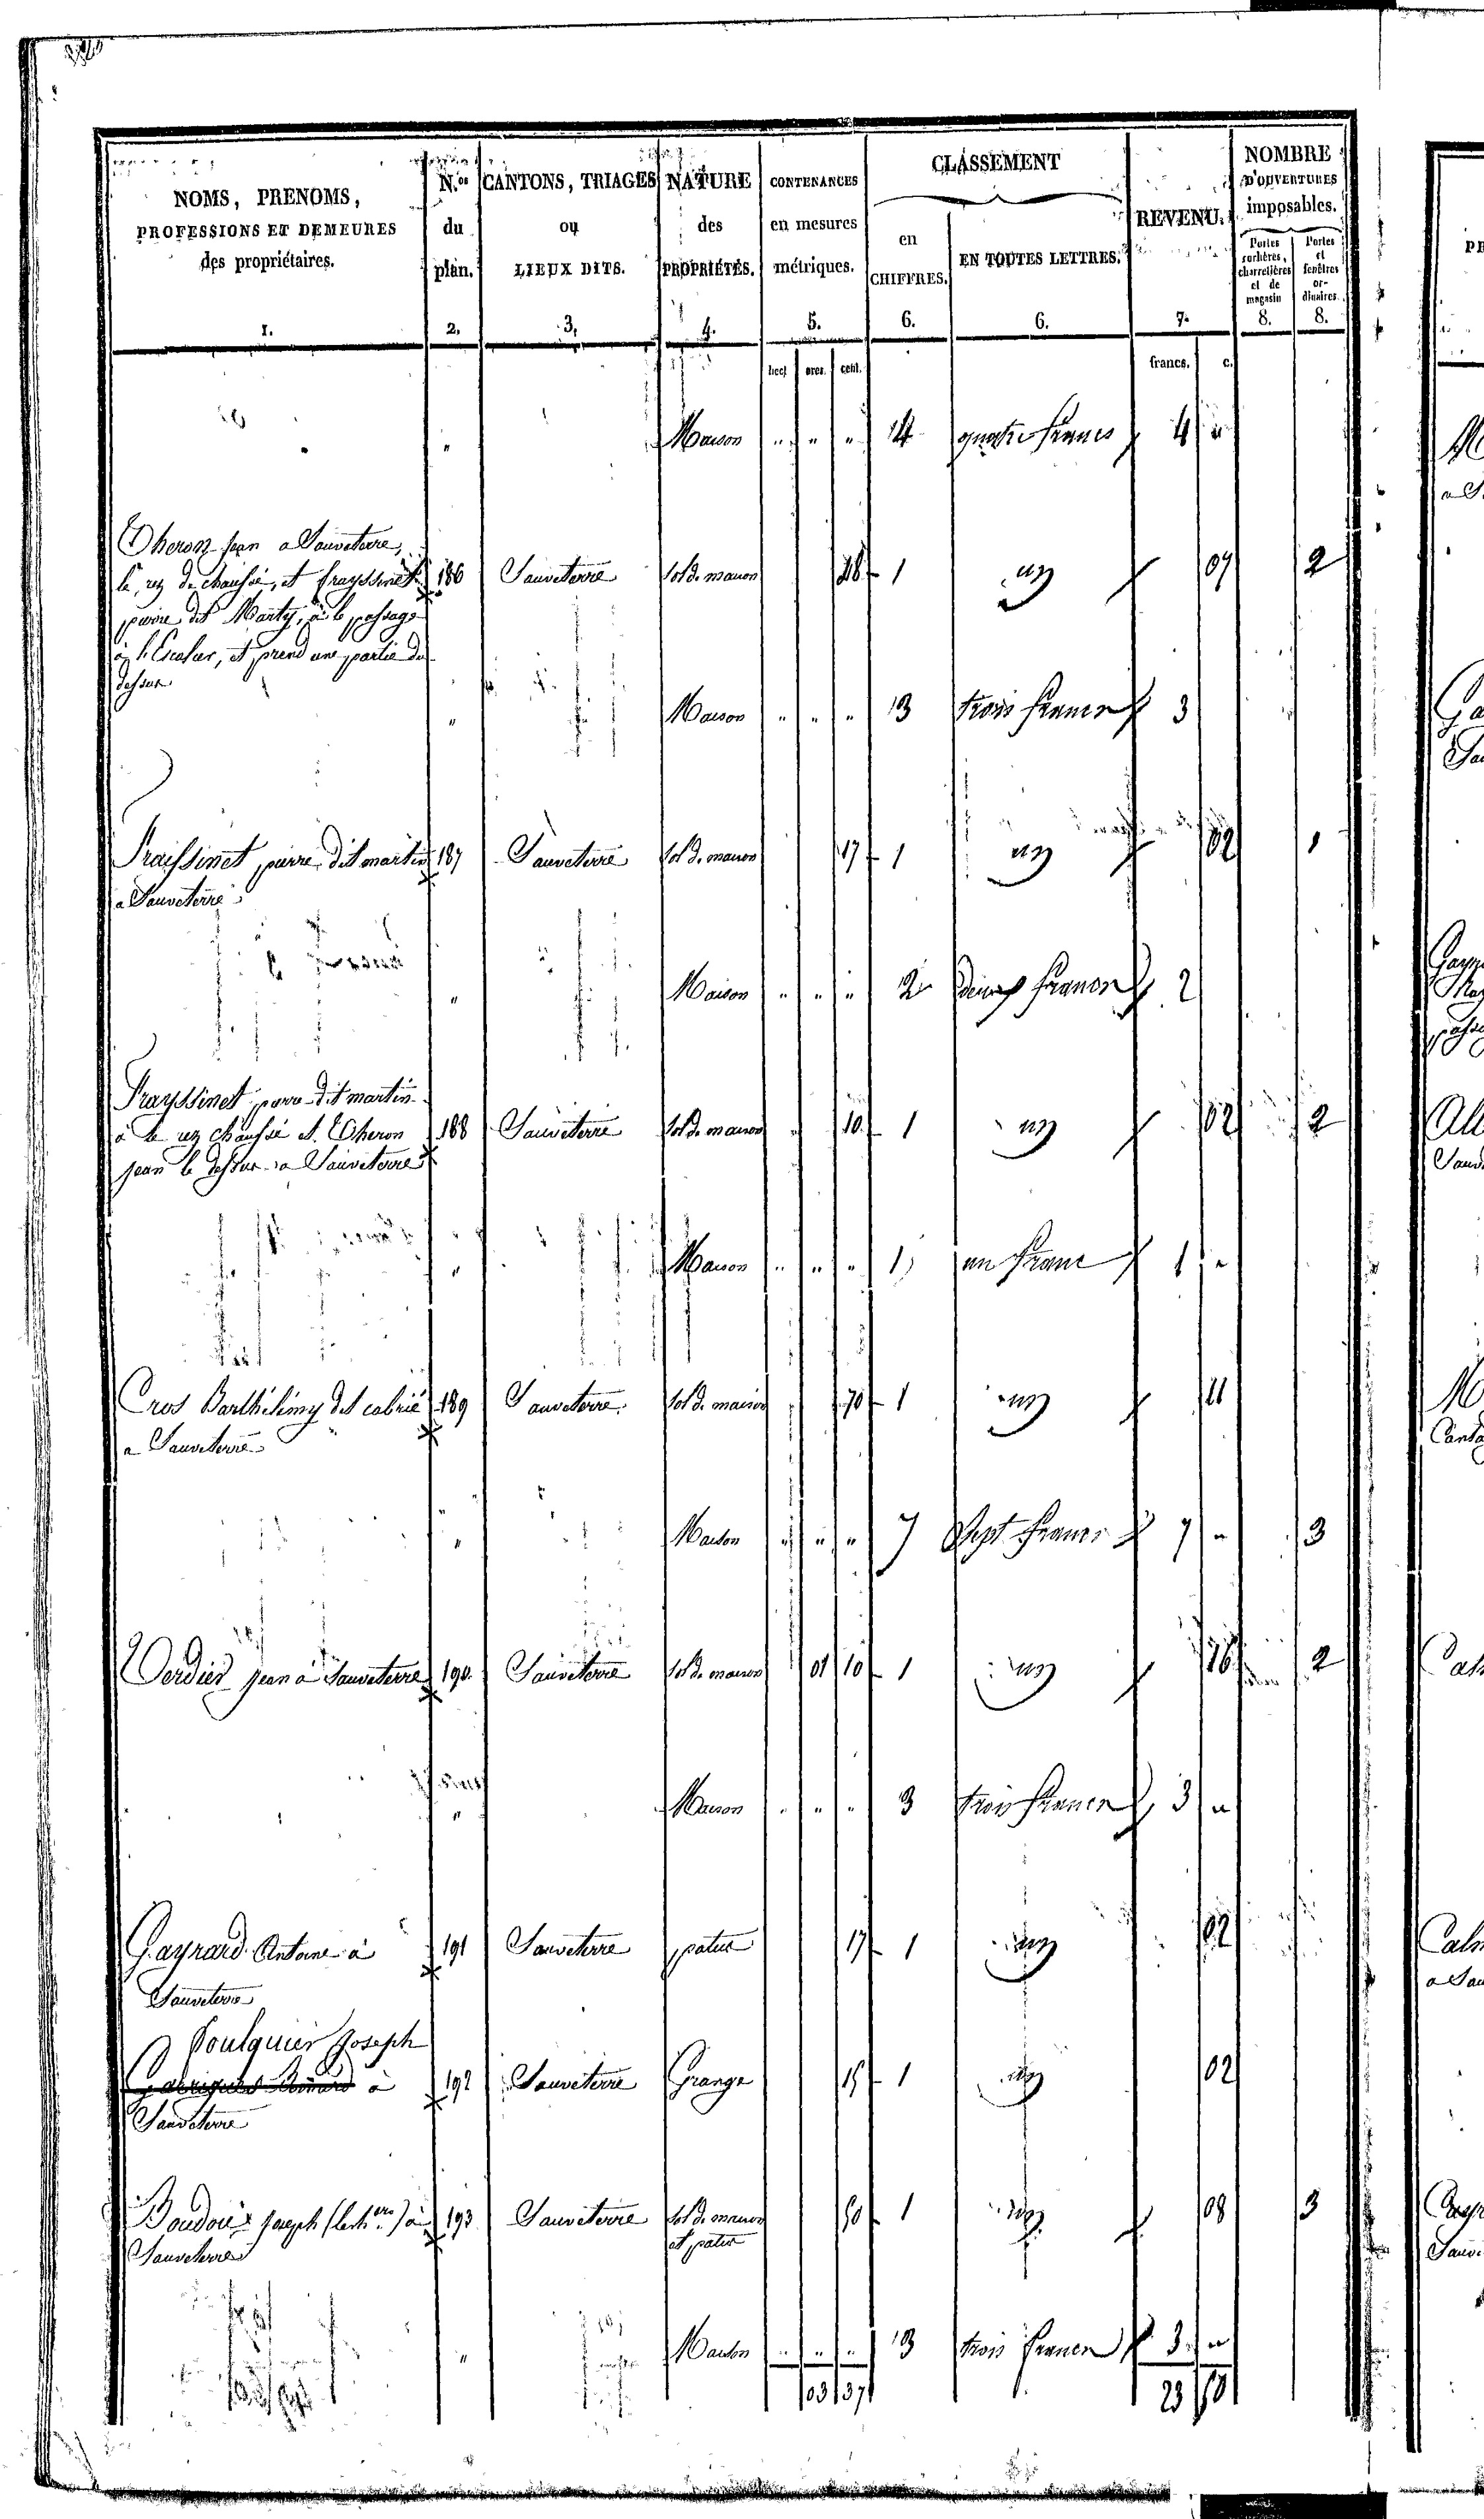 NOMS, PRENOMS, PROFESSIONS ET DEMEURES des propriétaires. 1.
N.os du plan. 2.
CANTONS, TRIAGES ou LIEUX DITS. 3.
NATURE des PROPRIÉTÉS. 4.
CONTENANCES en mesures métriques. 5.
CLASSEMENT
en CHIFFRES. 6.
EN TOUTES LETTRES. 6.
REVENU. 7.
NOMBRE D'OUVERTURES imposables.
Portes cochères, charretières et de magasin 8.
Portes et fenêtres ordinaires. 8.
hect ares. cent. francs. c.
" Maison " " " 4 quatre francs 4 "
Theron jean a Sauveterre,
le rez de chaussée, et frayssinet 186 Sauveterre sol de maison 28 1 un 2
pierre dit Marty, a le passage
à l'Escalier, et prend une partie du
dessus
" Maison " " " 3 trois francs 3
Fraissinet pierre dit martin 187 Sauveterre sol de maison 17 1 un 02 1
a Sauveterre
" Maison " " " 2 deux francs 2
Frayssinet pierre dit martin
a le rez chaussée et Theron 188 Sauveterre sol de maison 10 1 un 02 2
jean le dessus a Sauveterre
" Maison " " " 1 un franc 1 "
Cros Barthélemy dit cabrié 189 Sauveterre sol de maison 70 1 un 11
a Sauveterre
" Maison " " " 7 Sept francs 7 " 3
Verdier jean a Sauveterre 190 Sauveterre sol de maison 01 10 1 un 16 2
" Maison " " " 3 trois francs 3 "
Gayrard Antoine à 191 Sauveterre patus 17 1 un 02
Sauveterre
Foulquier Joseph
à 192 Sauveterre Grange 15 1 un 02
Sauveterre
Boudou joseph à 193 Sauveterre sol de maison 50 1 un 08 3
Sauveterre et patus
" Maison " " " 3 trois francs 3 "
03 37 23